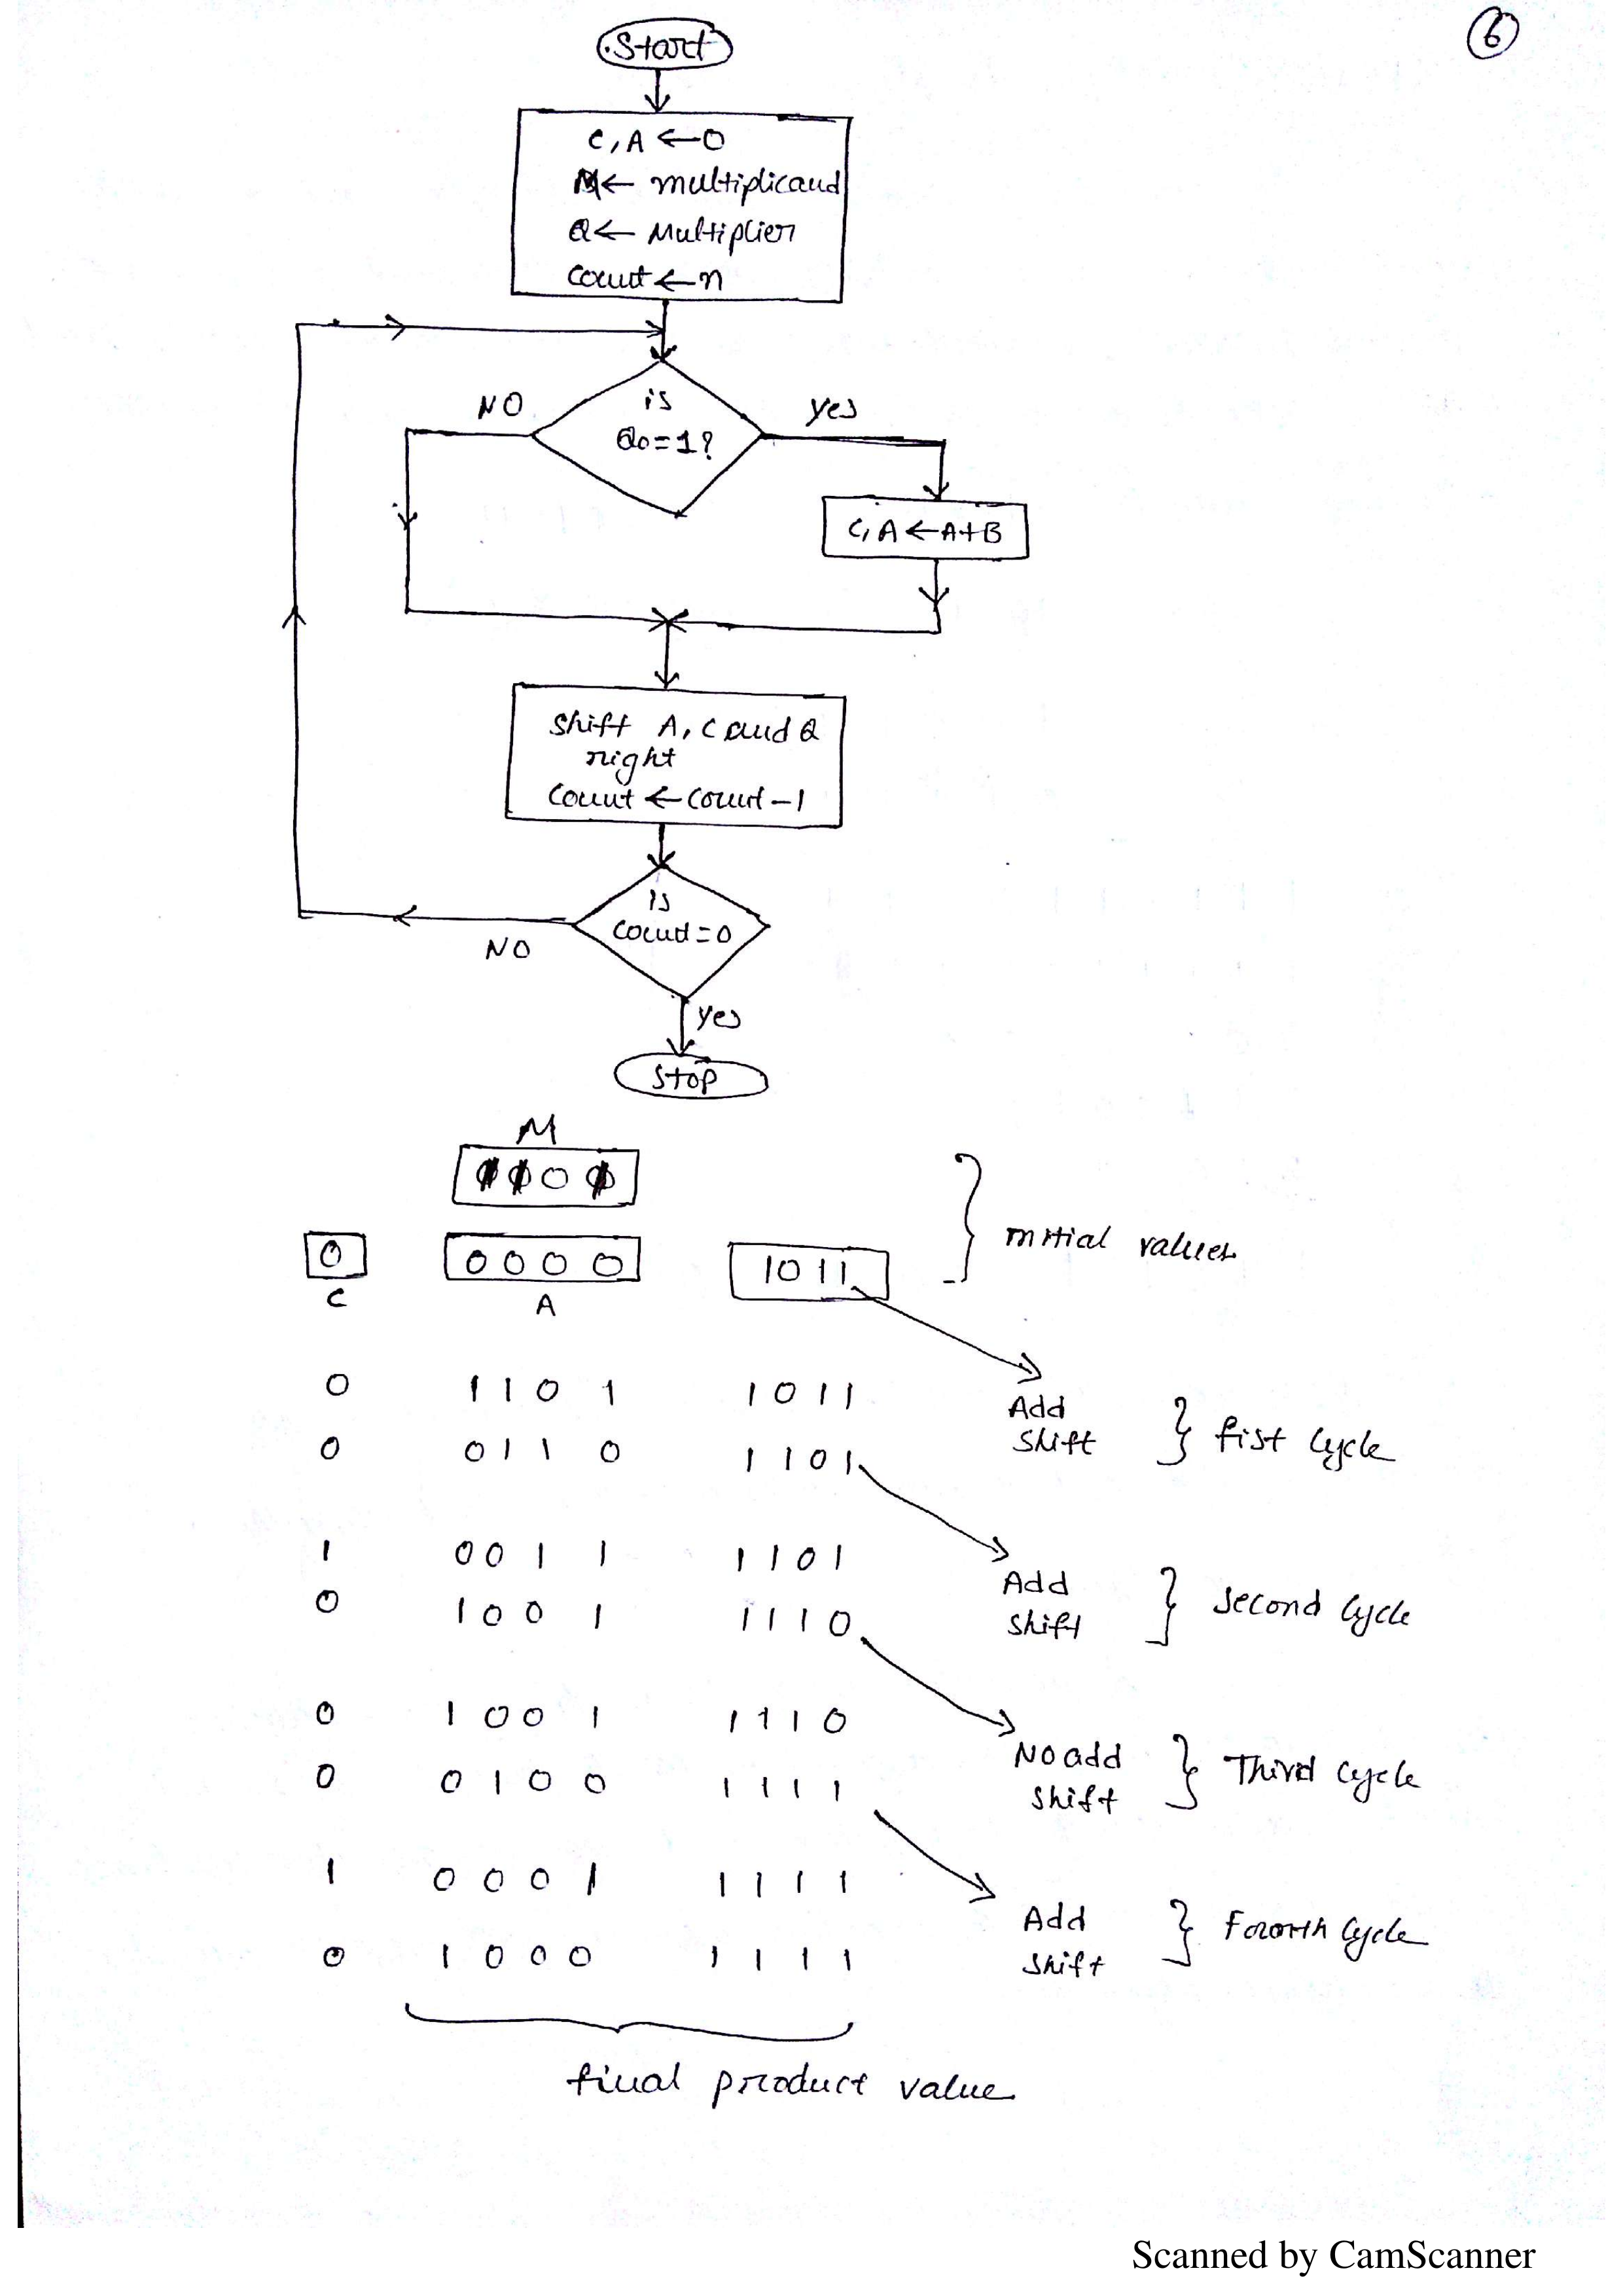 6
Start
C, A ← 0
M ← multiplicand
Q ← Multiplier
Count ← n
is
Q0 = 1?
NO
yes
C, A ← A+B
Shift A, C and Q
right
Count ← Count - 1
is
Count = 0
NO
yes
Stop
M
0
0 0 0 0
1 0 1 1
initial values
C
A
0 1 1 0 1 1 0 1 1
Add
0 0 1 1 0 1 1 0 1
Shift
first Cycle
1 0 0 1 1 1 1 0 1
Add
0 1 0 0 1 1 1 1 0
Shift
Second Cycle
0 1 0 0 1 1 1 1 0
No add
0 0 1 0 0 1 1 1 1
Shift
Third Cycle
1 0 0 0 1 1 1 1 1
Add
0 1 0 0 0 1 1 1 1
Shift
Fourth Cycle
final product value
Scanned by CamScanner